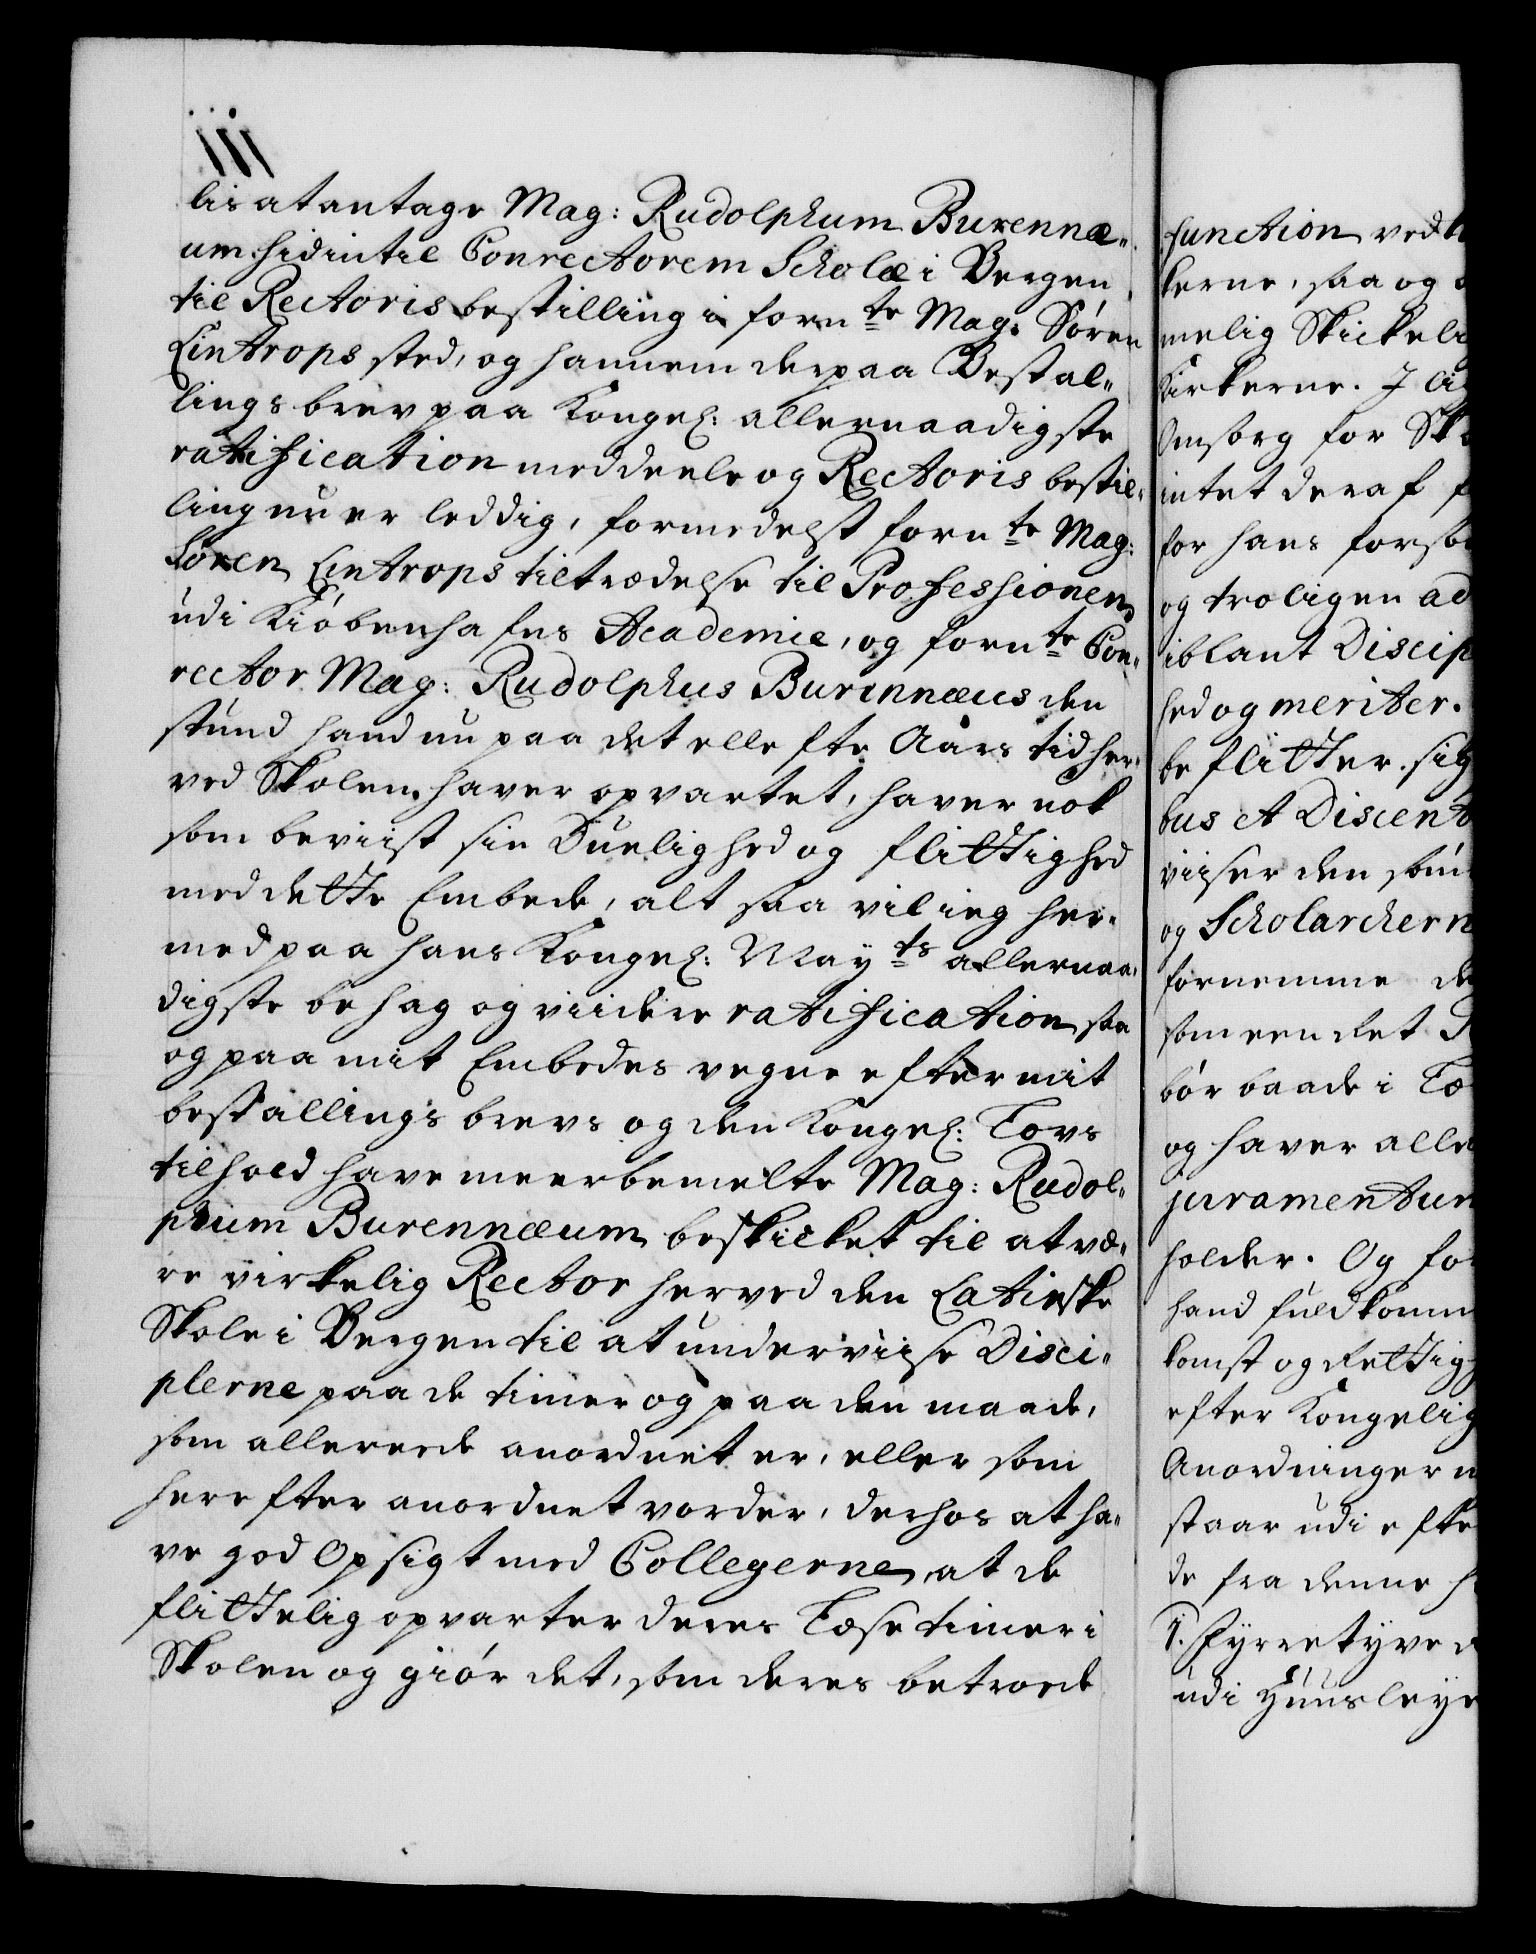 lis at antage Mag: Rudolphum Burennæ„
um hidintil Conrectorem Scholæ i Bergen
til Rectoris bestilling i fornte Mag: Sören
Lintrops sted, og hannem derpaa Bestal„
lings brev paa Kongel: allernaadigste
ratification meddeele og Rectoris bestil„
ling nu er leddig, formedelst fornte Mag:
Sören Lintrops tiltrædelse til Professionen
udi Kiöbenhafns Academie, og fornte Con„
rector Mag: Rudolphus Burennæus den
stund hand nu paa det ellefte Aars tid her„
ved Skolen haver opvartet, haver nok
som beviist sin Duelighed og flittighed
med dette Embede, alt saa vil ieg her„
med paa hans Kongel: Mayts allernaa„
digste behag og viidere ratification, saa
og paa mit Embedes vegne efter mit
bestallings brevs og den Kongel: Lovs
tilhold have meerbemelte Mag: Rudol„
phum Burennæum beskicket til at væ„
re virkelig Rector her ved den Latinske
Skole i Bergen til at underviise Disci„
plerne paa de timer og paa den maade,
som allereede anordnet er, eller som
herefter anordnet vorder, derhos at ha„
ve god Opsigt med Collegerne, at de
flittelig opvarter deres Læse timer i
Skolen og giör det, som deres betroede
function ved
kerne, saa og
melig Skickeli
Kirkerne. I li
Omsorg for Sko
intet deraf f
for hans forsöm
og troligen ad
iblant Discip
hed og meriter.
beflitter sig
bus et Discent
viiser den söm
og Scholarchern
fornemme de
som een ret R
bör baade i Læ
og haver alle
juramentum
holder. Og fo
hand fuldkomm
komst og Rettig
efter Kongelig
Anordninger
staar udi efte
de fra denne
1. Fyrretyve
udi Huusleye